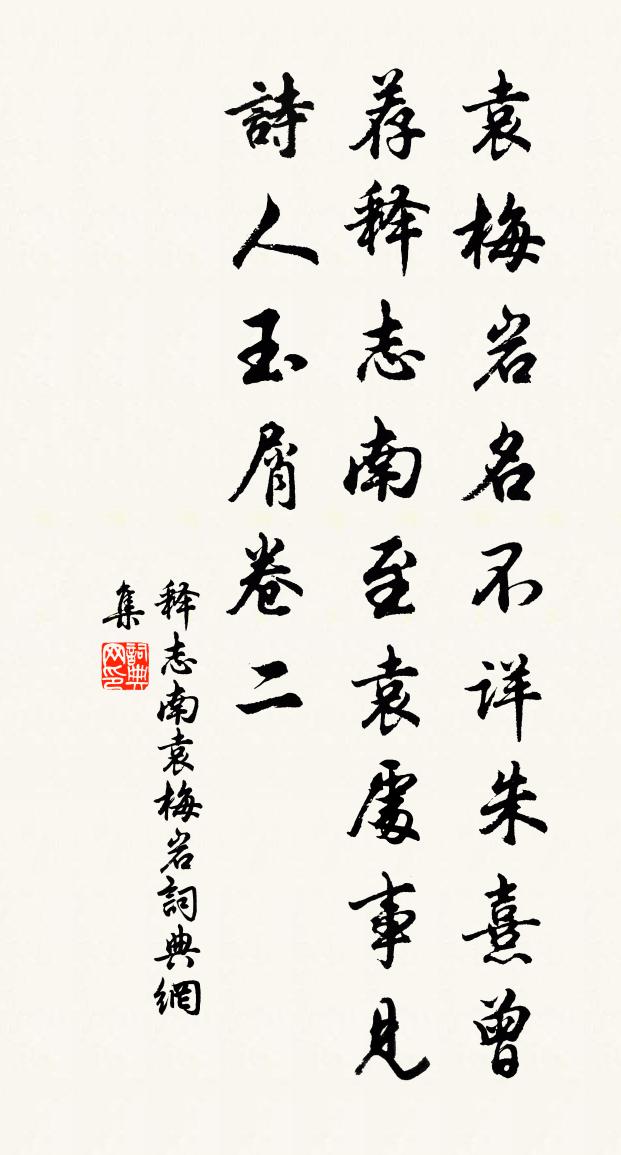 袁梅岩名不详朱熹曾
荐释志南至袁處事見
詩人玉屑卷二
释志南袁梅岩詞典網
集
詞典
网印